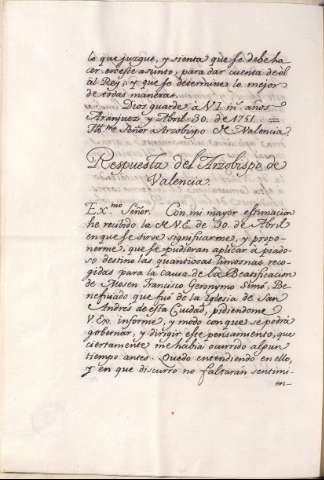 lo que juzgue, y sienta que se debe ha
cer en este asunto, para dar cuenta de él
al Rey, y que se determine lo mejor
de todas maneras.
Dios guarde a V.I. m.s años
Aranjuez y Abril 30. de 1751. =
Ill.mo Señor Arzobispo de Valencia.
Respuesta del Arzobispo de
Valencia.
Ex.mo Señor. Con mi mayor estimacion
he recibido la de V.E. de 30. de Abril
en que se sirve significarme, y propo-
nerme, que se pudieran aplicar a piado-
so destino las quantiosas limosnas reco-
gidas para la causa de la Beatificacion
de Mosen Francisco Geronymo Simó, Be-
neficiado que fué de la Iglesia de San
Andrés de esta Ciudad, pidiendome
V.Ex. informe, y modo con que se podrá
gobernar, y dirigir este pensamiento, que
ciertamente me habia ocurrido algun
tiempo antes. Quedo entendiendo en ello,
y en que discurro no faltarán sentimi-
en-